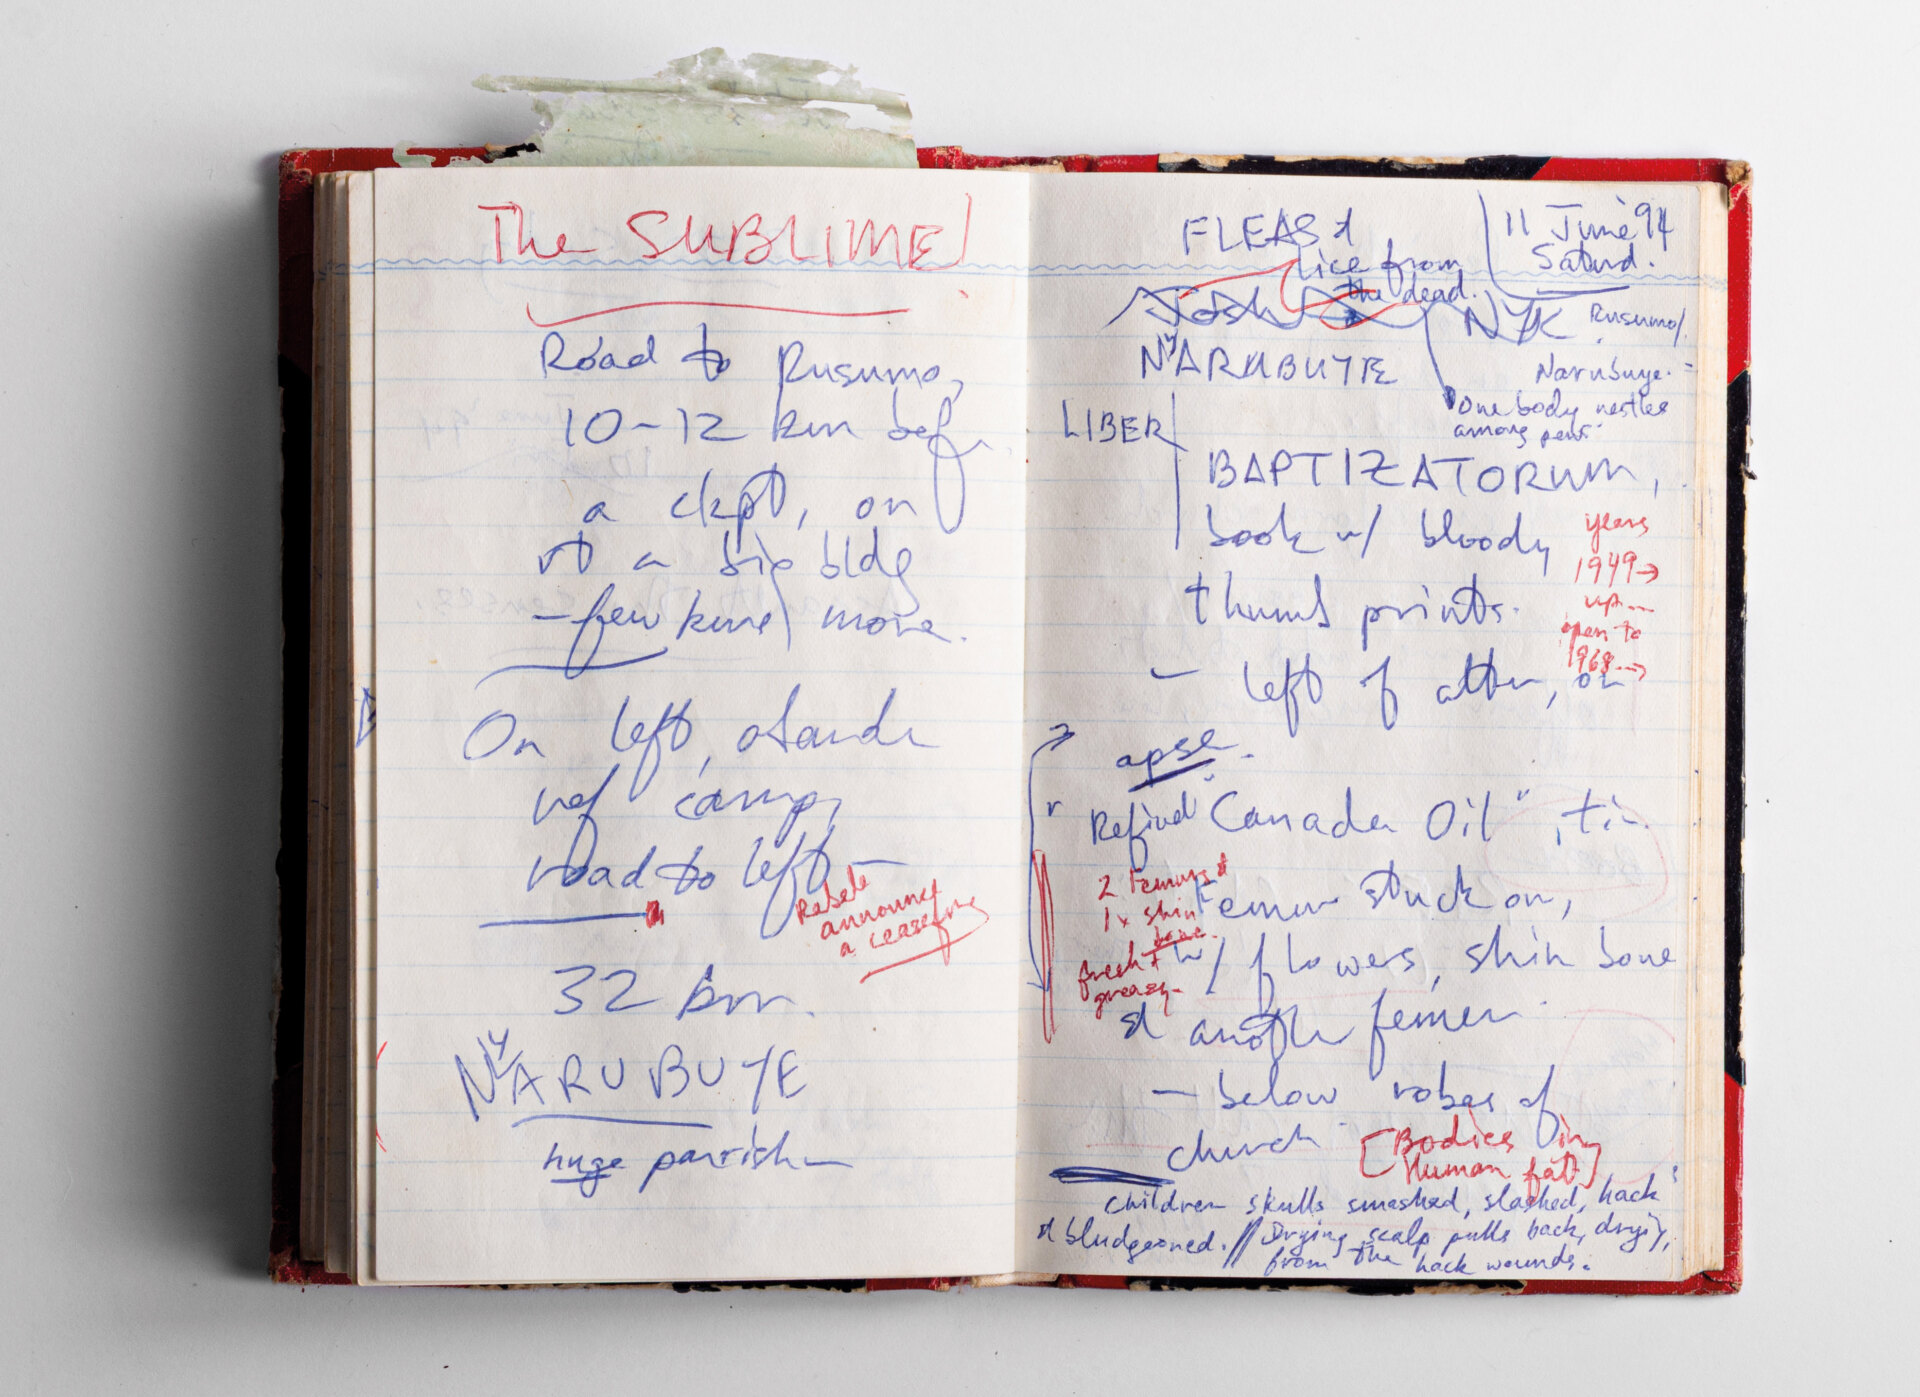 The SUBLIME
Road to Rusumo,
10-12 km bef
a ckpt, on
rt a big bldg
- few kms more.
On left, stands
ref camp,
road to left -
Rebels
announce
a ceasefire
32 km.
NYARUBUYE
huge parish
FLEAS &
lice from
the dead.
11 June '94
Saturd.
Josh
NYK
Rusumo/
Narubuye.
NYARUBUYE
One body nestles
among pews.
LIBER
BAPTIZATORUM,
book w/ bloody
thumb prints.
years
1949 →
up -
open to
1968 →
- left of alter, on
apse.
"Refined Canada Oil", tin
2 Femurs &
1 x shin
bone.
fresh &
greasy -
Femur stuck on,
w/ flowers, shin bone
& another femer.
- below robes of
church
[Bodies in
Human fat]
children skulls smashed, slashed, hack
& bludgeoned. // Drying scalp pulls back, drying,
from the hack wounds.